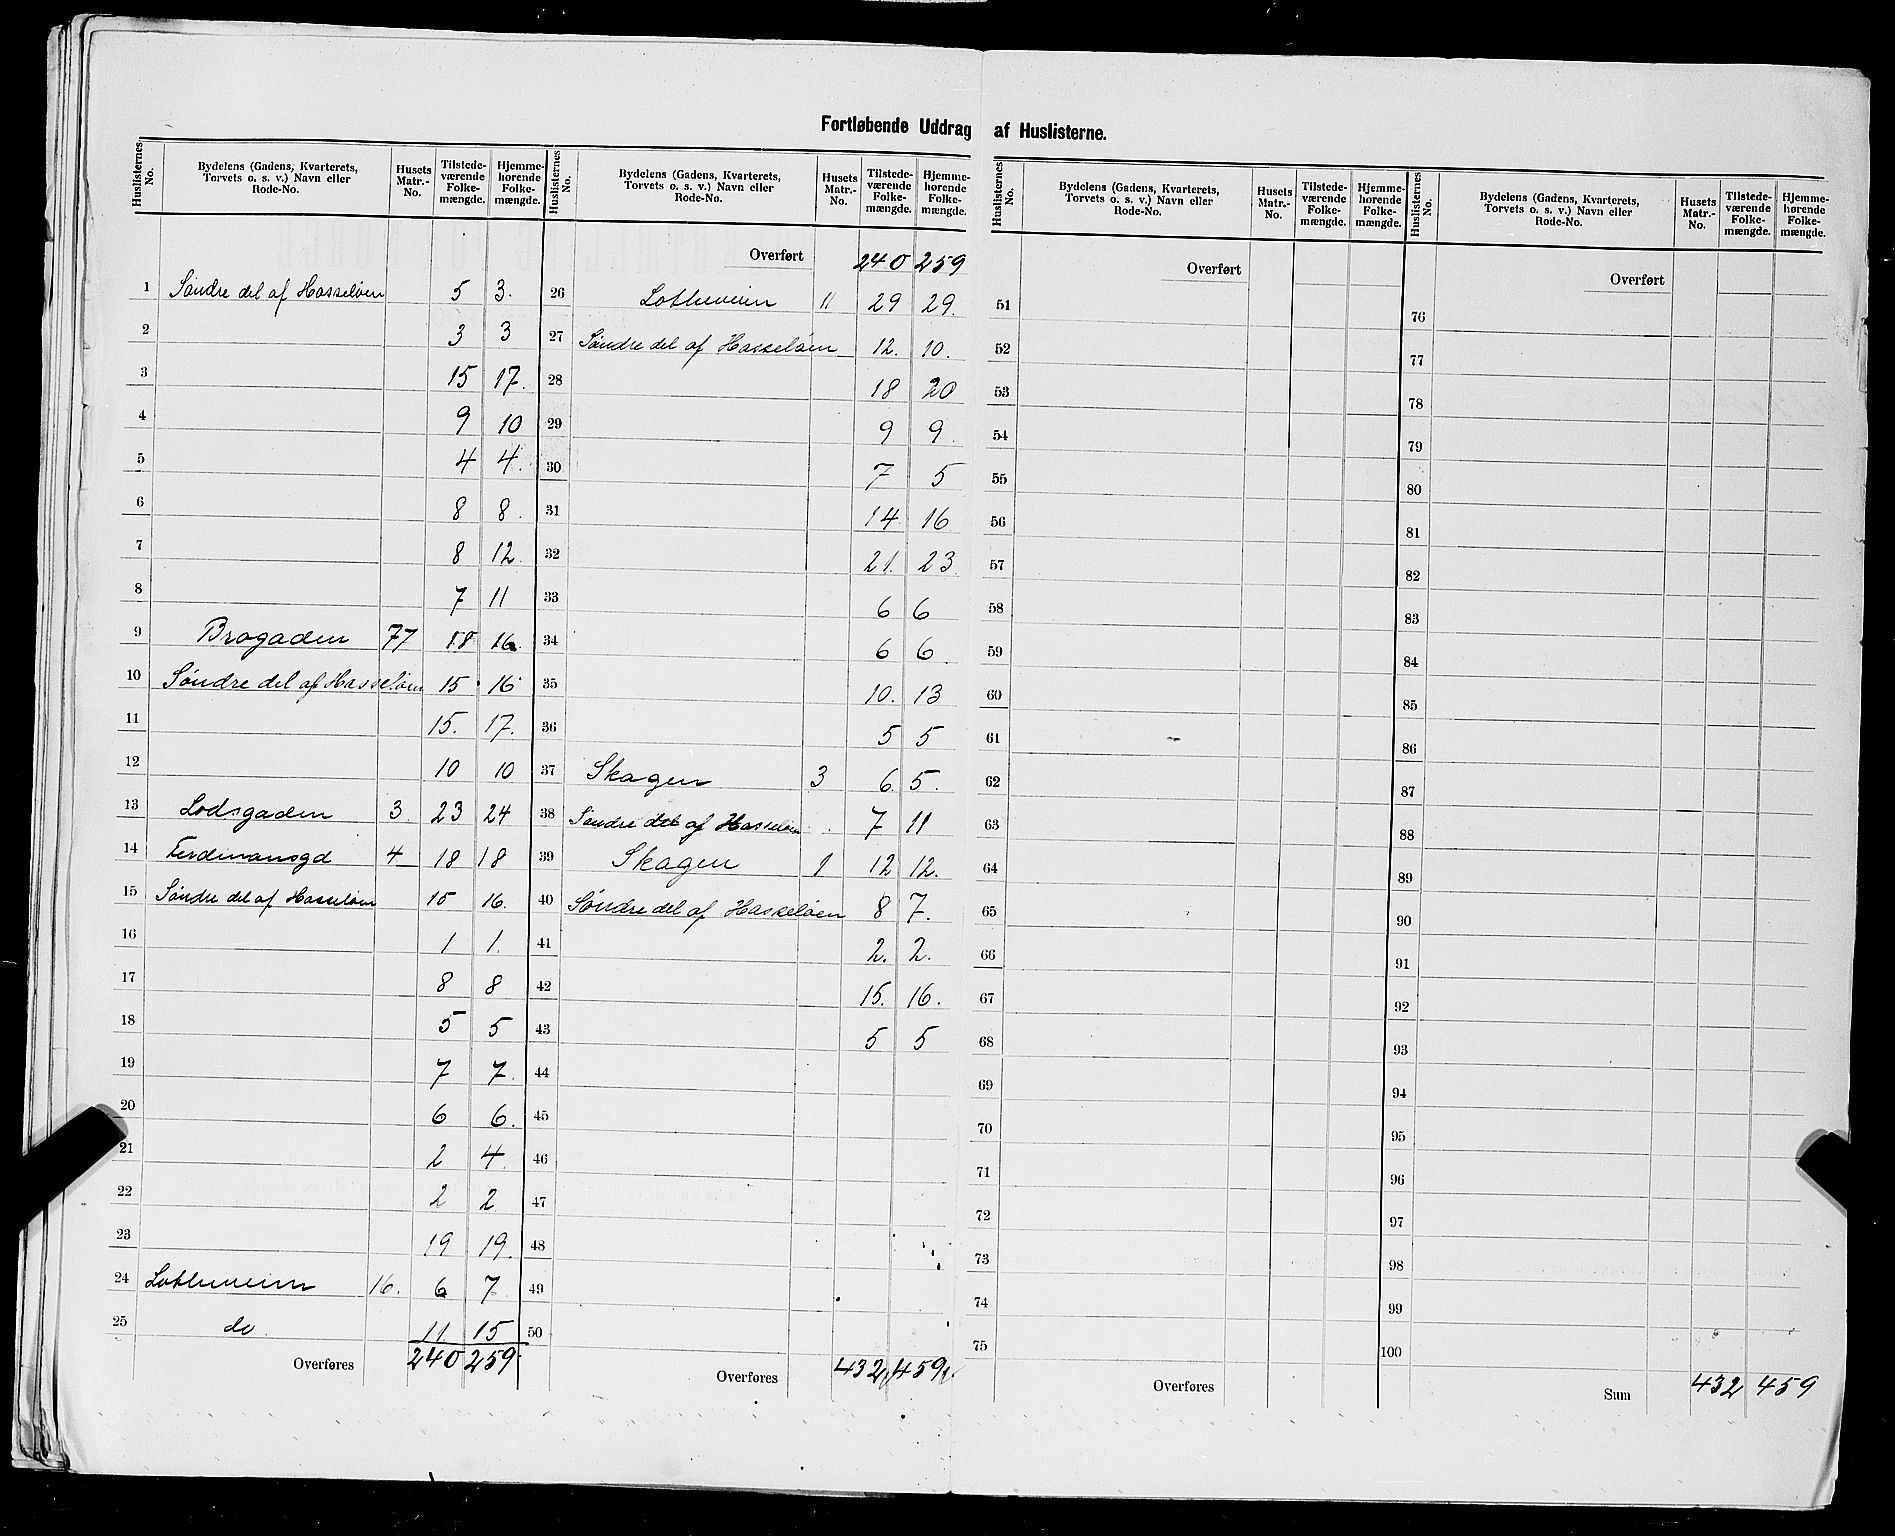 Fortløbende Uddrag af Huslisterne.
Huslisternes No. | Bydelens (Gadens, Kvarterets, Torvets o. s. v.) Navn eller Rode-No. | Husets Matr.-No. | Tilstede-værende Folke-mængde. | Hjemme-hørende Folke-mængde.
1 Søndre del af Hasseløen 5 3.
2 3 3
3 15 17.
4 9 10
5 4 4.
6 8 8.
7 8 12.
8 7 11
9 Brogaden 77 18 16.
10 Søndre del af Hasseløen 15 16
11 15. 17.
12 10 10
13 Lodsgaden 3. 23 24
14 Ferdinansgd 4 18 18
15 Søndre del af Hasseløen 15 16.
16 1 1.
17 8 8
18 5 5
19 7 7.
20 6 6.
21 2 4.
22 2 2
23 19 19.
24 Lotheveien 16. 6 7
25 do 11 15
Overføres 240 259
Huslisternes No. | Bydelens (Gadens, Kvarterets, Torvets o. s. v.) Navn eller Rode-No. | Husets Matr.-No. | Tilstede-værende Folke-mængde. | Hjemme-hørende Folke-mængde.
Overført 240 259
26 Lotheveien 11 29 29.
27 Søndre del af Hasseløen 12. 10.
28 18 20
29 9 9.
30 7 5
31 14 16
32 21. 23.
33 6 6
34 6 6.
35 10. 13
36 5 5
37 Skagen 3 6 5.
38 Søndre del af Hasseløen 7 11
39 Skagen 1 12 12.
40 Søndre del af Hasseløen 8 7.
41 2. 2.
42 15. 16.
43 5 5
44
45
46
47
48
49
50
Overføres 432 459
Huslisternes No. | Bydelens (Gadens, Kvarterets, Torvets o. s. v.) Navn eller Rode-No. | Husets Matr.-No. | Tilstede-værende Folke-mængde. | Hjemme-hørende Folke-mængde.
Overført
51
52
53
54
55
56
57
58
59
60
61
62
63
64
65
66
67
68
69
70
71
72
73
74
75
Overføres
Huslisternes No. | Bydelens (Gadens, Kvarterets, Torvets o. s. v.) Navn eller Rode-No. | Husets Matr.-No. | Tilstede-værende Folke-mængde. | Hjemme-hørende Folke-mængde.
Overført
76
77
78
79
80
81
82
83
84
85
86
87
88
89
90
91
92
93
94
95
96
97
98
99
100
Sum 432 459